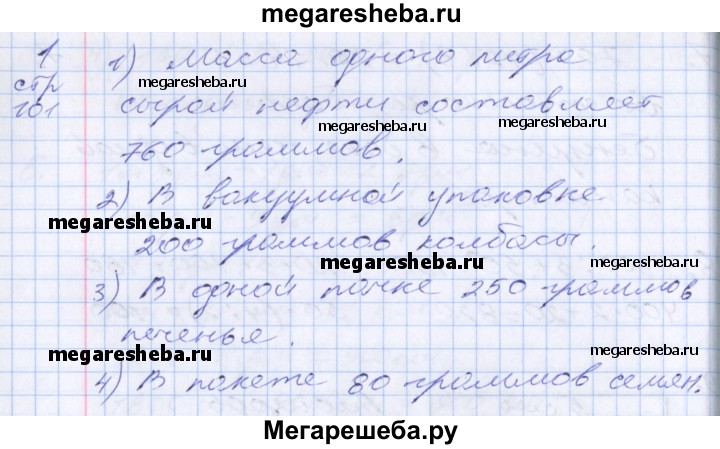 megaresheba.ru
1 1) Масса одного литра
стр megaresheba.ru megaresheba.ru
101 сырой нефти составляет
megaresheba.ru
760 граммов.
megaresheba.ru
2) В вакуумной упаковке
megaresheba.ru
200 граммов колбасы.
megaresheba.ru megaresheba.ru
3) В одной пачке 250 граммов
печенье.
megaresheba.ru megaresheba.ru
4) В пакете 80 граммов семян.
megaresheba.ru
Мегарешеба.ру